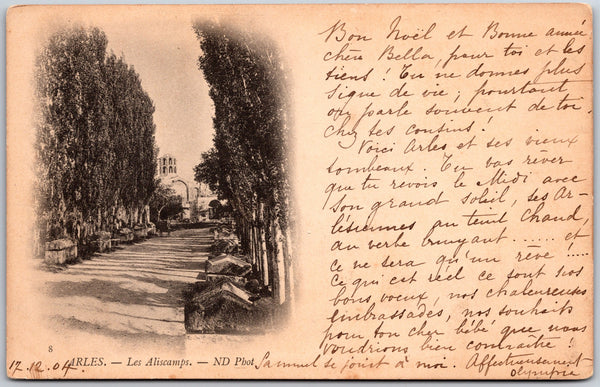 Bon Noël et Bonne année
chère Bella, pour toi et les
tiens! Tu ne donnes plus
signe de vie; pourtant
on parle souvent de toi
chez ses cousins!
Voici Arles et ses vieux
tombeaux. Tu vas rêver
que tu revois le Midi avec
son grand soleil, ses Ar-
lésiennes au teint chaud,
au verbe bruyant ...... et
ce ne sera qu'un rêve!....
Ce qui est réel ce sont nos
bons voeux, nos chaleureuses
embrassades, nos souhaits
pour ton cher bébé que nous
voudrions bien connaître!
Samuel se joint à moi. Affectueusement
Olympia
8
ARLES. — Les Aliscamps. — ND Phot
17.12.04.